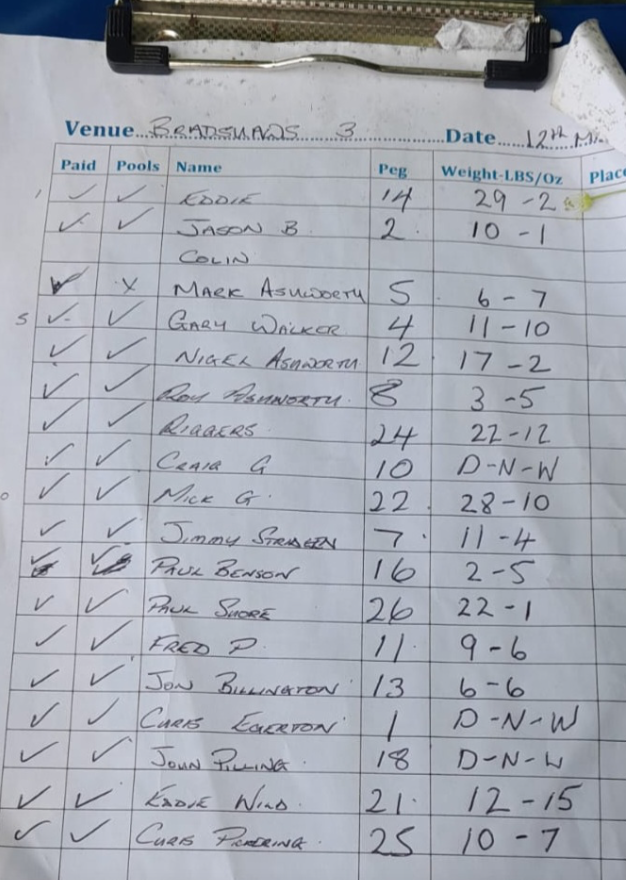 Venue BRADSHAWS 3 Date 12th M
Paid Pools Name Peg Weight-LBS/Oz Place
1 ✓ ✓ EDDIE 14 29-2
✓ ✓ JASON B 2 10-1
COLIN
✓ X MARK ASHWORTH 5 6-7
5 ✓ ✓ GARY WALKER 4 11-10
✓ ✓ NIGEL ASHWORTH 12 17-2
✓ ✓ ROY ASHWORTH 8 3-5
✓ ✓ RIGGERS 24 22-12
✓ ✓ CRAIG G 10 D-N-W
0 ✓ ✓ MICK G 22 28-10
✓ ✓ JIMMY 7 11-4
✓ ✓ PAUL BENSON 16 2-5
✓ ✓ PAUL SHORE 26 22-1
✓ ✓ FRED P 11 9-6
✓ ✓ JON BILLINGTON 13 6-6
✓ ✓ CHRIS EGERTON 1 D-N-W
✓ ✓ JOHN PILLING 18 D-N-W
✓ ✓ EDDIE 21 12-15
✓ ✓ CHRIS PICKERING 25 10-7